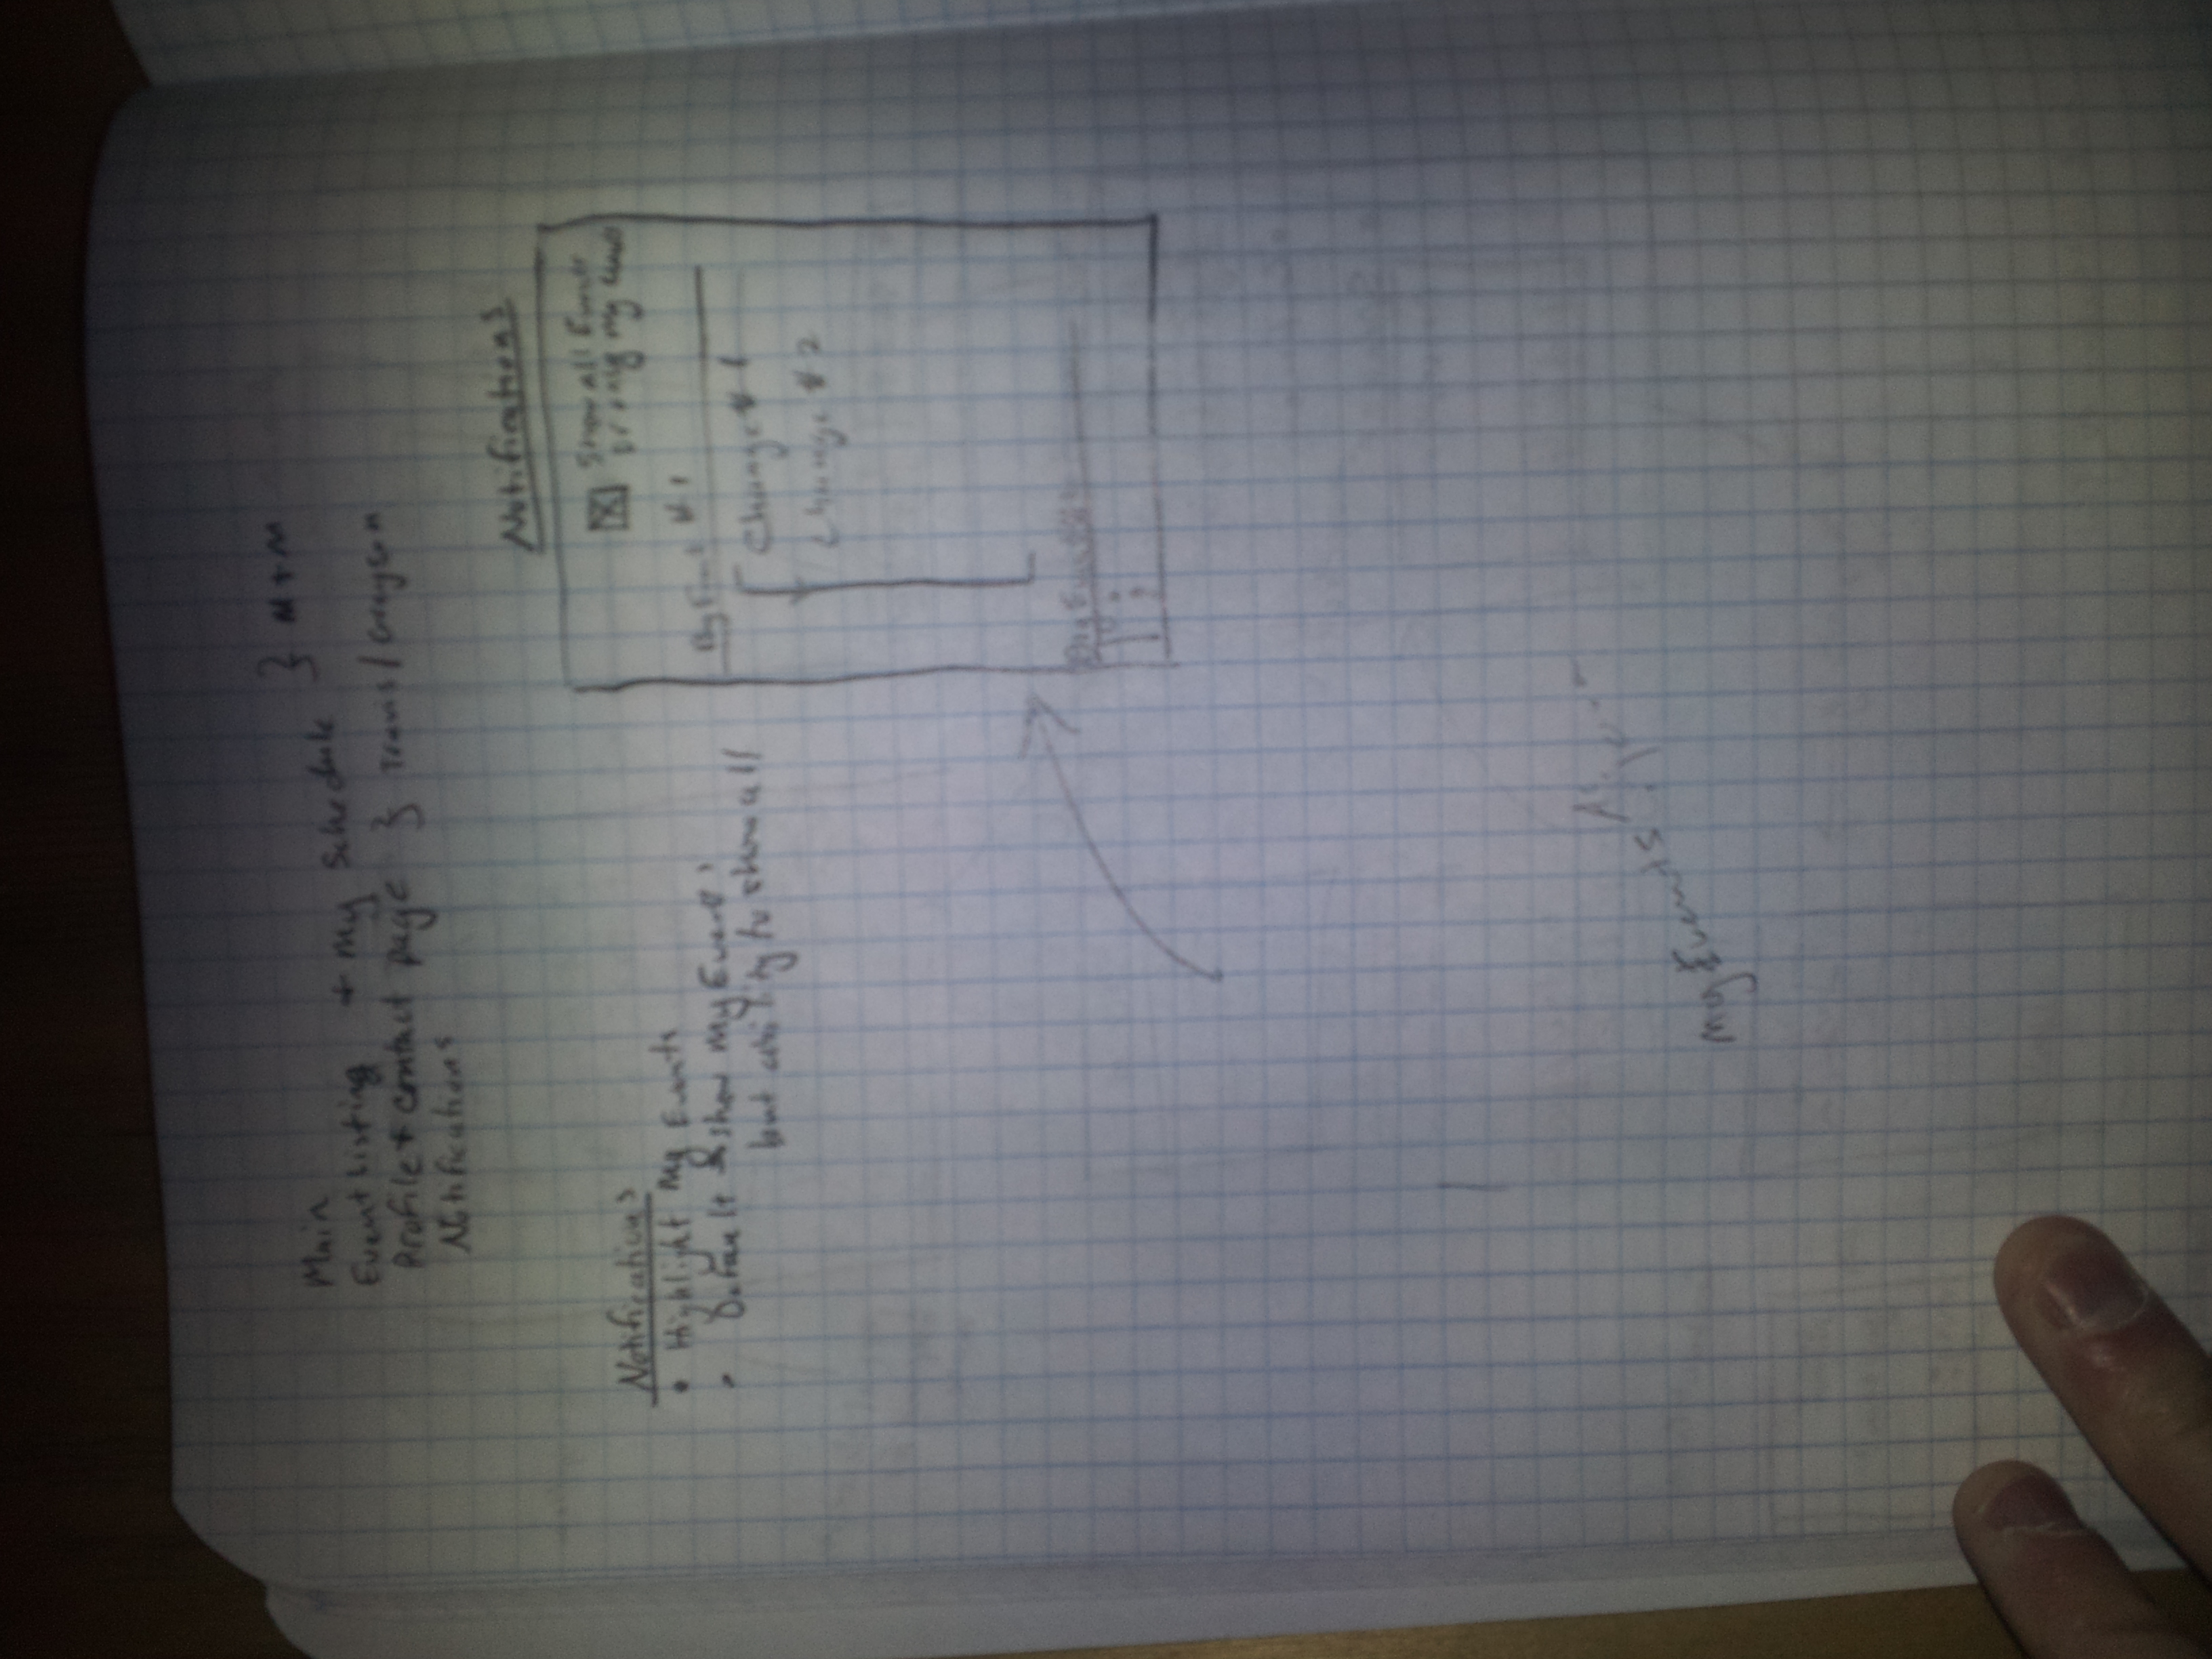 Main
Event Listing + My Schedule } M+M
Profile + contact page } Travis / Grayson
Notifications
Notifications
• Highlight My Events
• Default show My Events,
but ability to show all
Notifications
Show all Events
My Event #1
Change #1
Change #2
My Events